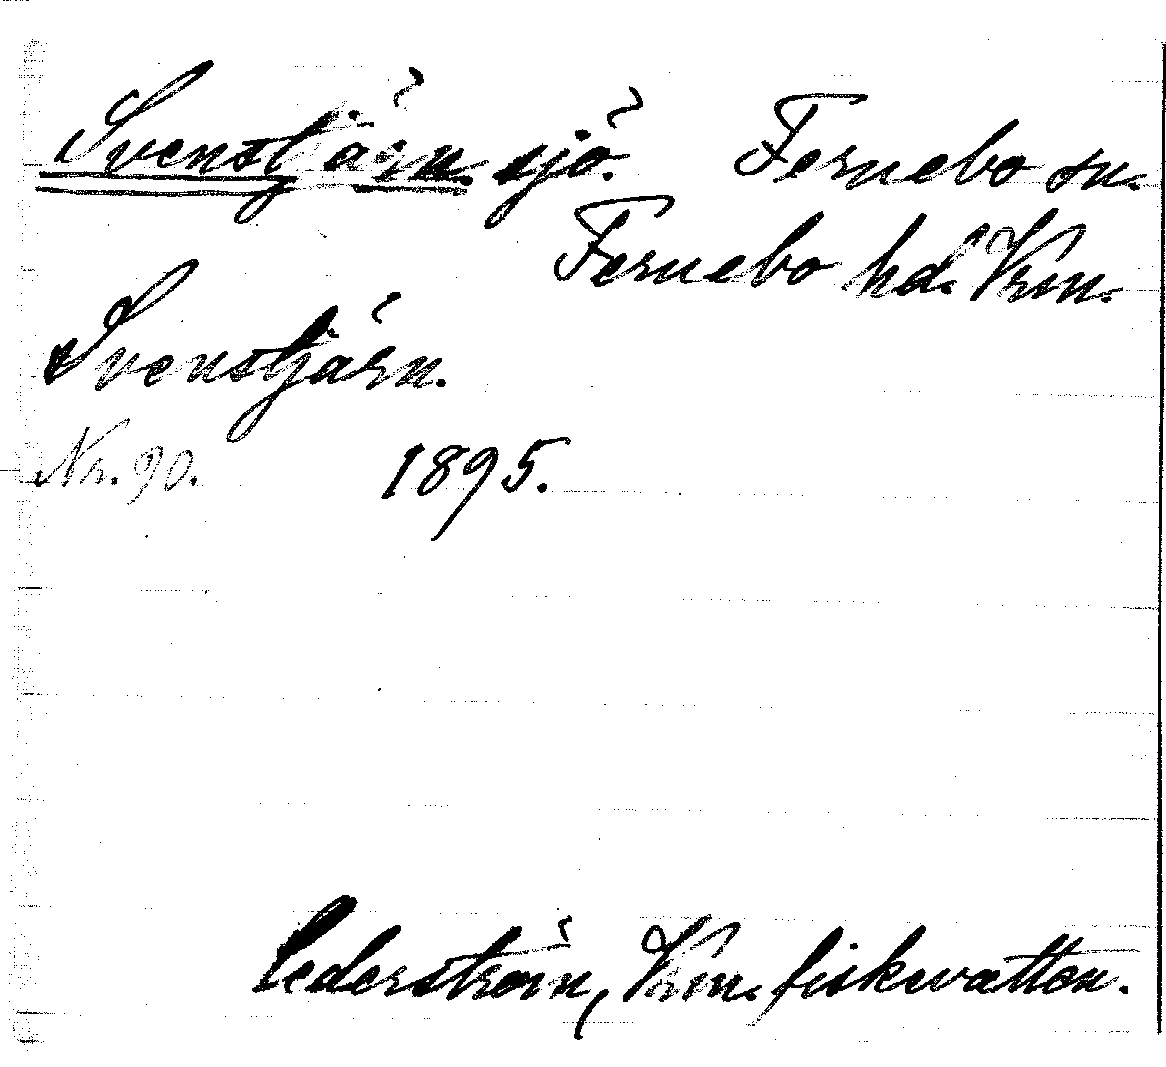 Svenstjärn. sjö. Fernebo sn.
Fernebo hd. Vrm.
Svenstjärn.
Nr. 90. 1895.
Cederström, Vrm. fiskvatten.